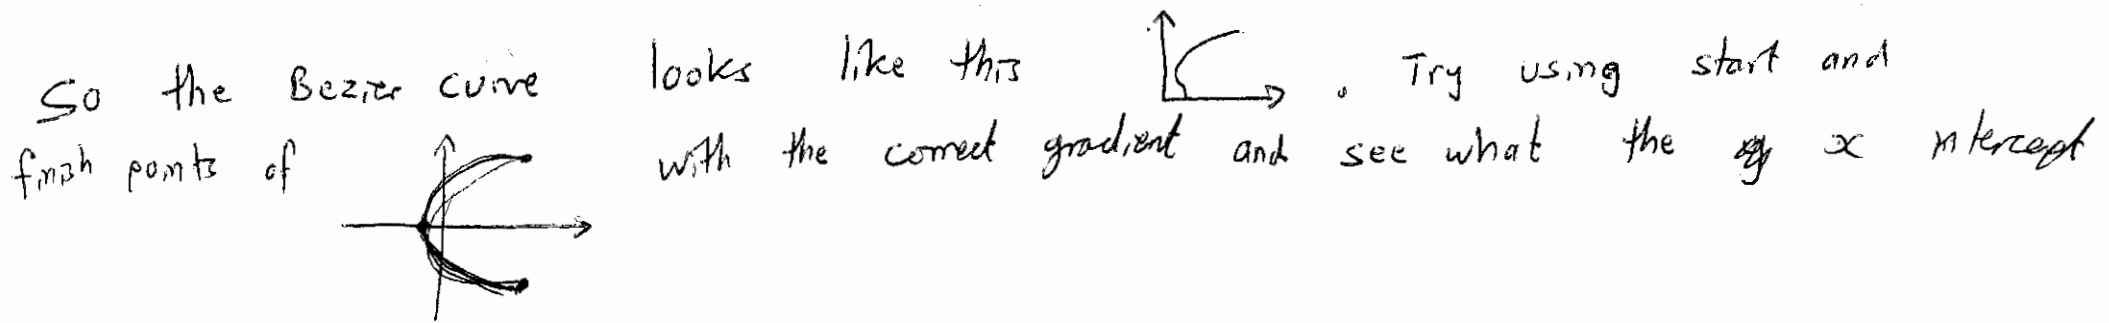 So the Bezier curve looks like this . Try using start and
finish points of with the correct gradient and see what the x intercept